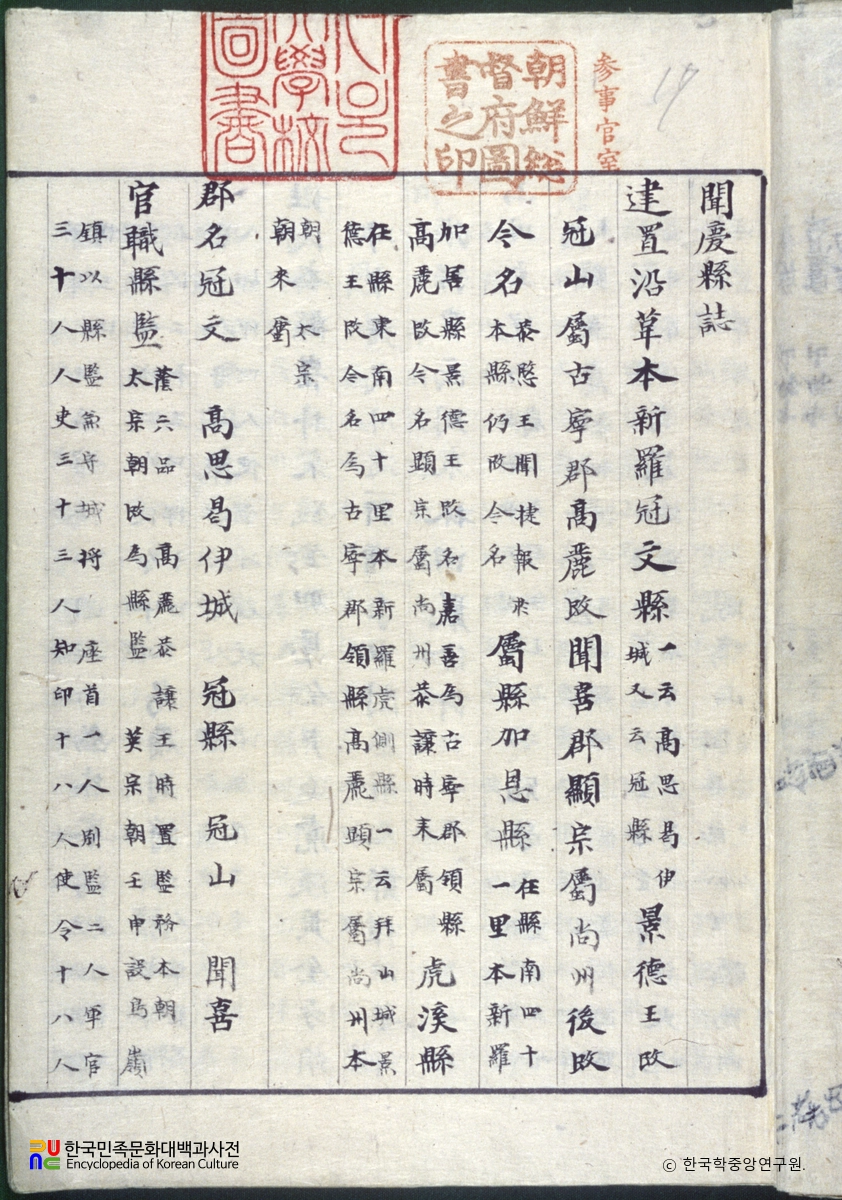 參事官室
朝鮮総
督府圖
書之印
서울
大學校
圖書
聞慶縣誌
建置沿革本新羅冠文縣 一云高思曷伊
城又云冠縣 景德王改
冠山屬古寧郡高麗改聞喜郡顯宗屬尚州後改
今名 恭愍王聞捷報於
本縣仍改今名 屬縣加恩縣 在縣南四十
一里本新羅
加害縣景德王改名嘉善爲古寧郡領縣
高麗改今名顯宗屬尚州恭讓時來屬 虎溪縣
在縣東南四十里本新羅虎側縣一云拜山城景
德王改今名爲古寧郡領縣高麗顯宗屬尚州本
朝太宗
朝來屬
郡名冠文 高思曷伊城 冠縣 冠山 聞喜
官職縣監 蔭六品 高麗恭讓王時置監務本朝
太宗朝改爲縣監 英宗朝壬申設鳥嶺
鎮以縣監兼守城將 座首一人別監二人軍官
三十人人史三十三人知印十八人使令十八人
한국민족문화대백과사전
Encyclopedia of Korean Culture
© 한국학중앙연구원.